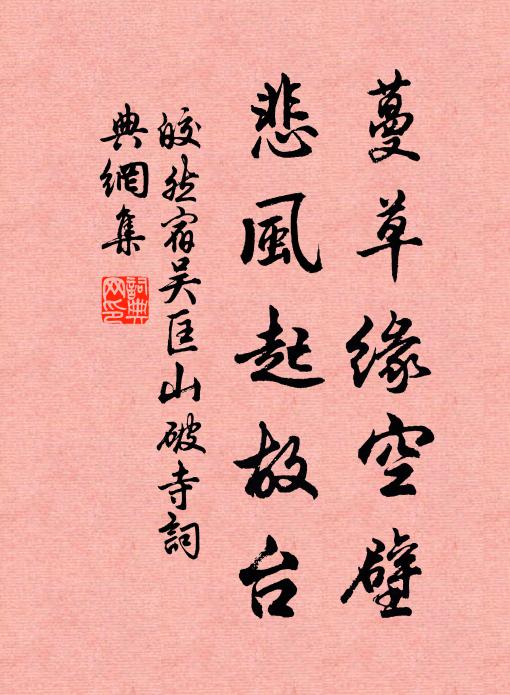 蔓草緣空壁
悲風起故台
皎然宿吴匡山破寺詞
典網集
詞典
网印